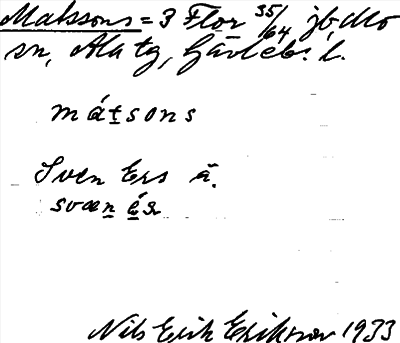 Matssons = 3 Flor 35/64 jb, Mo
sn, Ala tg, Gävlebs l.
mátsons
Sven Ers ä.
svæn és
Nils Erik Eriksson 1933